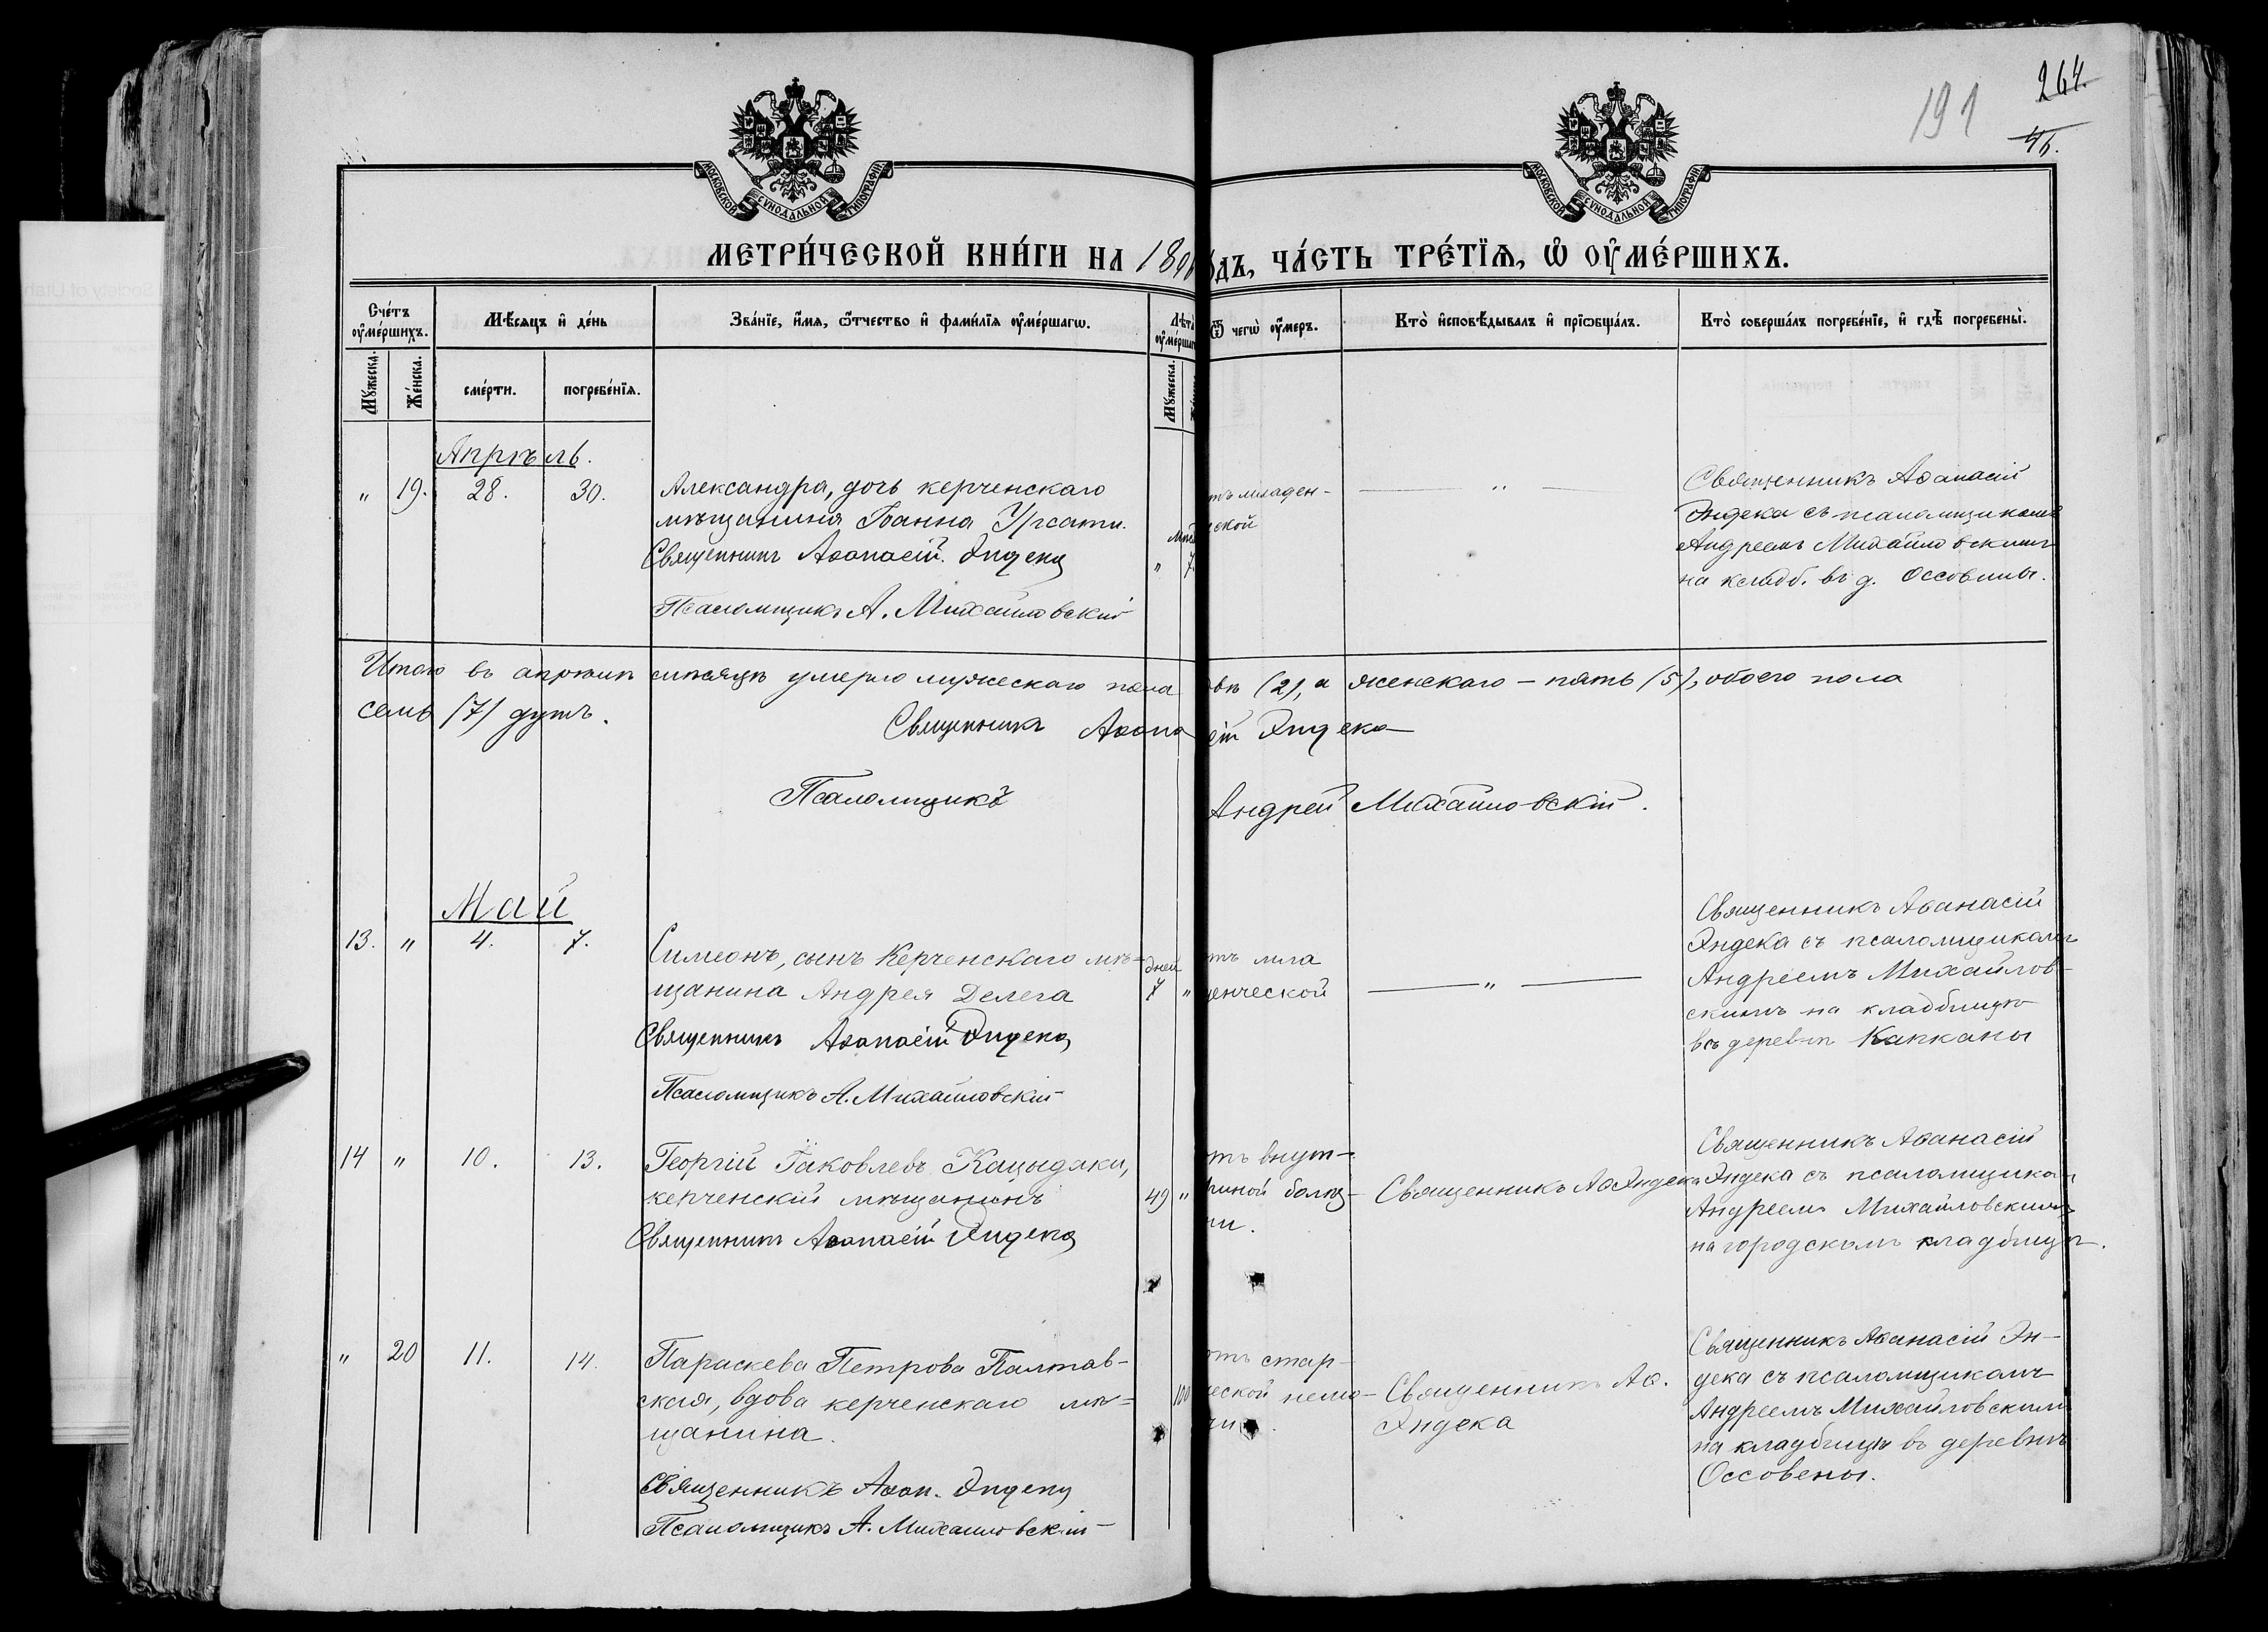 191
264.
46.
МОСКОВСКОЙ СУНОДАЛЬНОЙ ТИПОГРАФІИ
МОСКОВСКОЙ СУНОДАЛЬНОЙ ТИПОГРАФІИ
МЕТРИ́ЧЕСКОЙ КНИ́ГИ НА 189 ДЪ, ЧА́СТЬ ТРЕ́ТІѦ, Ѡ ОУ҆МЕ́РШИХЪ.
Сче́тъ оу҆ме́ршихъ.
Мꙋ́жеска.
Же́нска.
Мѣ́сяцъ и҆ де́нь
сме́рти.
погребе́нїя.
Зва́нїе, и҆́мя, ѻ҆́тчество и҆ фами́лїя оу҆ме́ршагѡ.
Лѣта̀ оу҆ме́ршаг
Мꙋ́жеска.
Ѿ чегѡ̀ оу҆́меръ.
Кто̀ и҆сповѣ́дывалъ и҆ прїѡбща́лъ.
Кто̀ соверша́лъ погребе́нїе, и҆ гдѣ̀ погребены̀.
Апрѣль.
" 19. 28. 30.
Александра, дочь керченскаго
мѣщанина Іоанна
Священникъ Аѳанасій Эндека
Псаломщикъ А. Михайловскій
" 7.
тъ младен-
ской
"
Священникъ Аѳанасій
Эндека съ псаломщикомъ
Андреемъ Михайловскимъ
на кладб. въ д. Оссовины.
Итого въ апрѣлѣ мѣсяцѣ умерло мужескаго пола двѣ (2), а женскаго – пять (5), обоего пола
семь (7) душъ.
Священникъ Аѳанасій Эндека
Псаломщикъ Андрей Михайловскій.
Май
13. " 4. 7.
Симеонъ, сынъ Керченскаго мѣ-
щанина Андрея Делега
Священникъ Аѳанасій Эндека
Псаломщикъ А. Михайловскій
дней
7 "
тъ мла
денческой
"
Священникъ Аѳанасій
Эндека съ псаломщикомъ
Андреемъ Михайлов-
скимъ на кладбищѣ
въ деревнѣ Капканы
14 " 10. 13.
Георгій Іаковлевъ Кацыдаки,
керченскій мѣщанинъ
Священникъ Аѳанасій Эндека
49 "
отъ внут-
ренной болѣз-
ни.
Священникъ Аѳ Эндека
Священникъ Аѳанасій
Эндека съ псаломщикомъ
Андреемъ Михайловскимъ
на городскомъ кладбищѣ.
" 20 11. 14.
Параскева Петрова Палтав-
ская, вдова керченскаго мѣ-
щанина.
Священникъ Аѳан. Эндека
Псаломщикъ А. Михайловскій
100
отъ стар-
ческой немо-
чи.
Священникъ Аѳ.
Эндека
Священникъ Аѳанасій Эн-
дека съ псаломщикомъ
Андреемъ Михайловскимъ
на кладбищѣ въ деревнѣ
Оссовены.